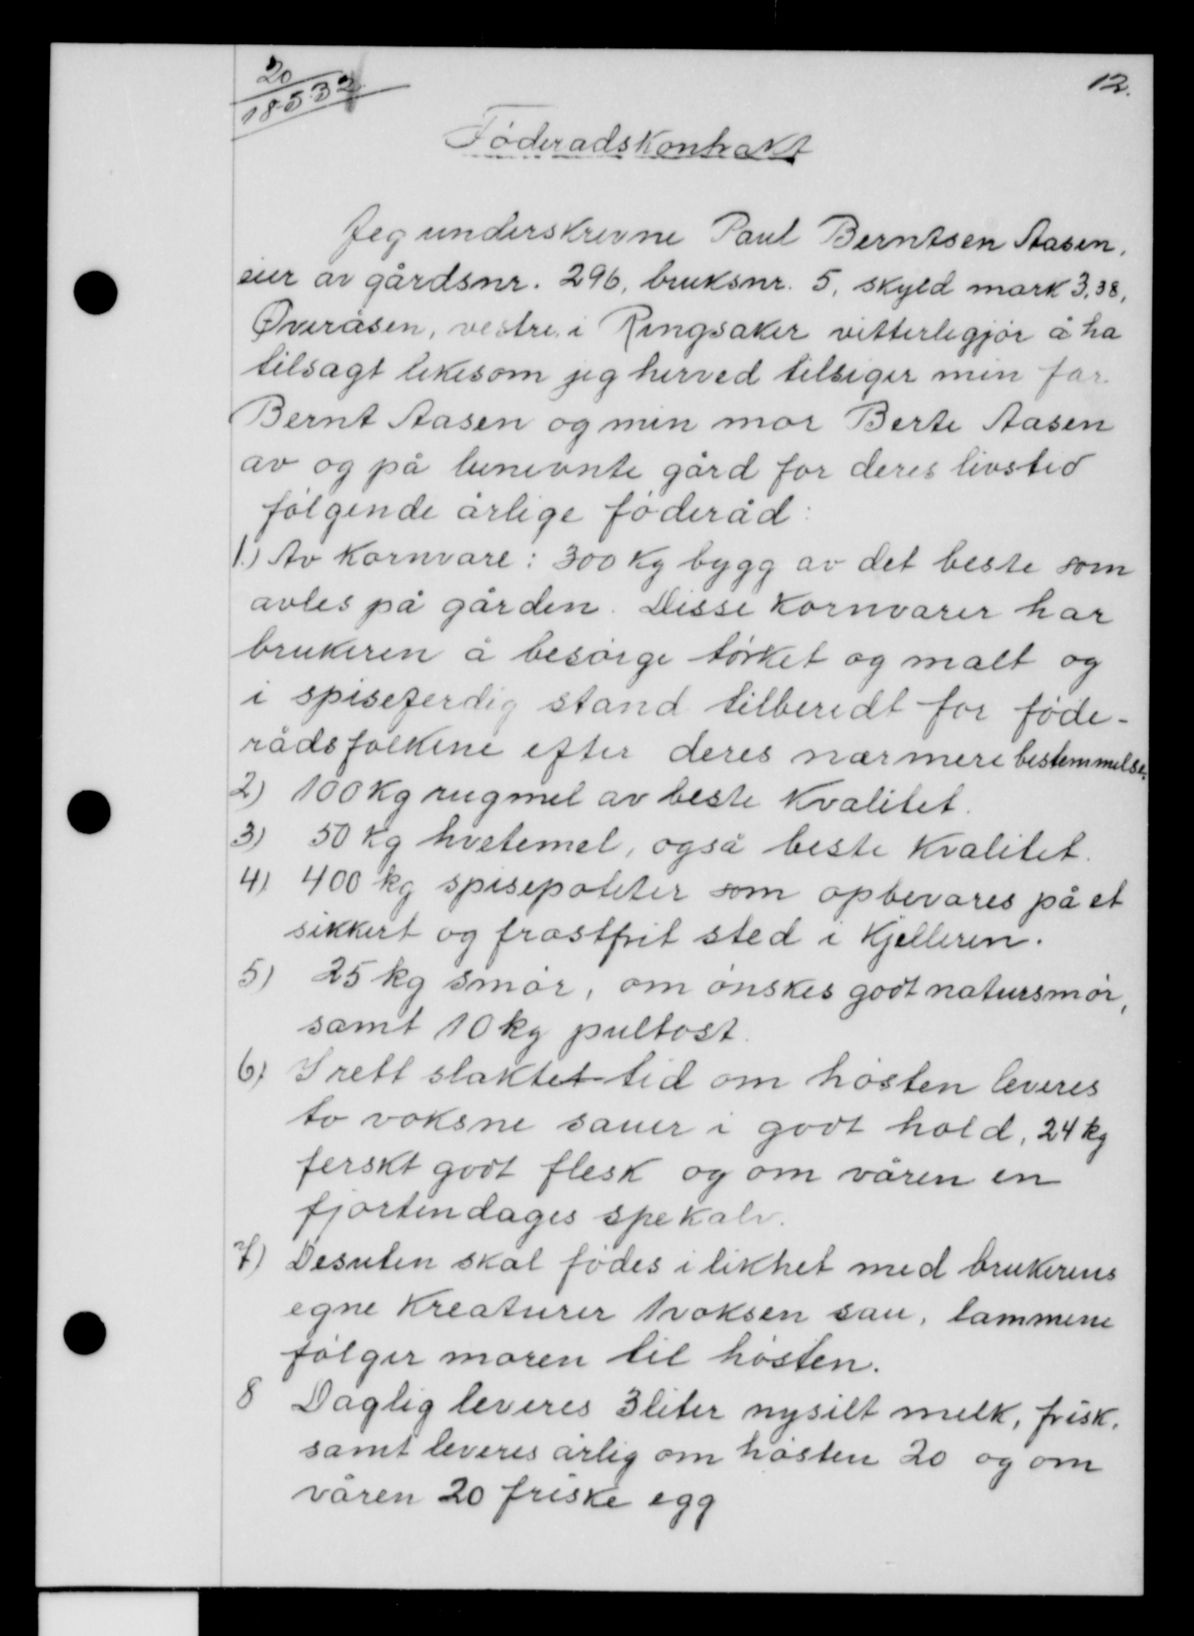 20
18532
12.
Føderadskontrakt
Jeg underskrevne Paul Berntsen Aasen,
eier av gårdsnr. 296, bruksnr. 5, skyld mark 3,38,
Øveråsen, vestre, i Ringsaker vitterligjør å ha
tilsagt likesom jeg herved tilsiger min far
Bernt Aasen og min mor Berte Aasen
av og på benevnte gård for deres livstid
følgende årlige føderåd:
1.) Av Kornvare: 300 Kg bygg av det beste som
avles på gården. Disse Kornvarer har
brukeren å besørge tørket og malt og
i spiseferdig stand tilberedt for føde-
rådsfolkene efter deres nærmere bestemmelse.
2) 100 Kg rugmel av beste Kvalitet.
3) 50 Kg hvetemel, også beste Kvalitet.
4) 400 kg spisepoteter som opbevares på et
sikkert og frostfrit sted i Kjelleren.
5) 25 kg smør, om ønskes godt natursmør,
samt 10 kg pultost.
6) I rett slaktet tid om høsten leveres
to voksne sauer i godt hold, 24 kg
ferskt godt flesk og om våren en
fjortendages spekalv.
7) Desuten skal fødes i likhet med brukerens
egne Kreaturer 1 voksen sau, lammene
følger moren til høsten.
8 Daglig leveres 3 liter nysilt melk, frisk,
samt leveres årlig om høsten 20 og om
våren 20 friske egg